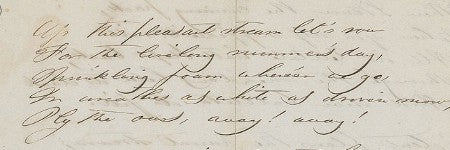 Up this pleasant stream let's row
For the livelong summer's day,
Sprinkling foam where'er we go
In wreathes as white as driven snow,
Ply the oars, away! away!